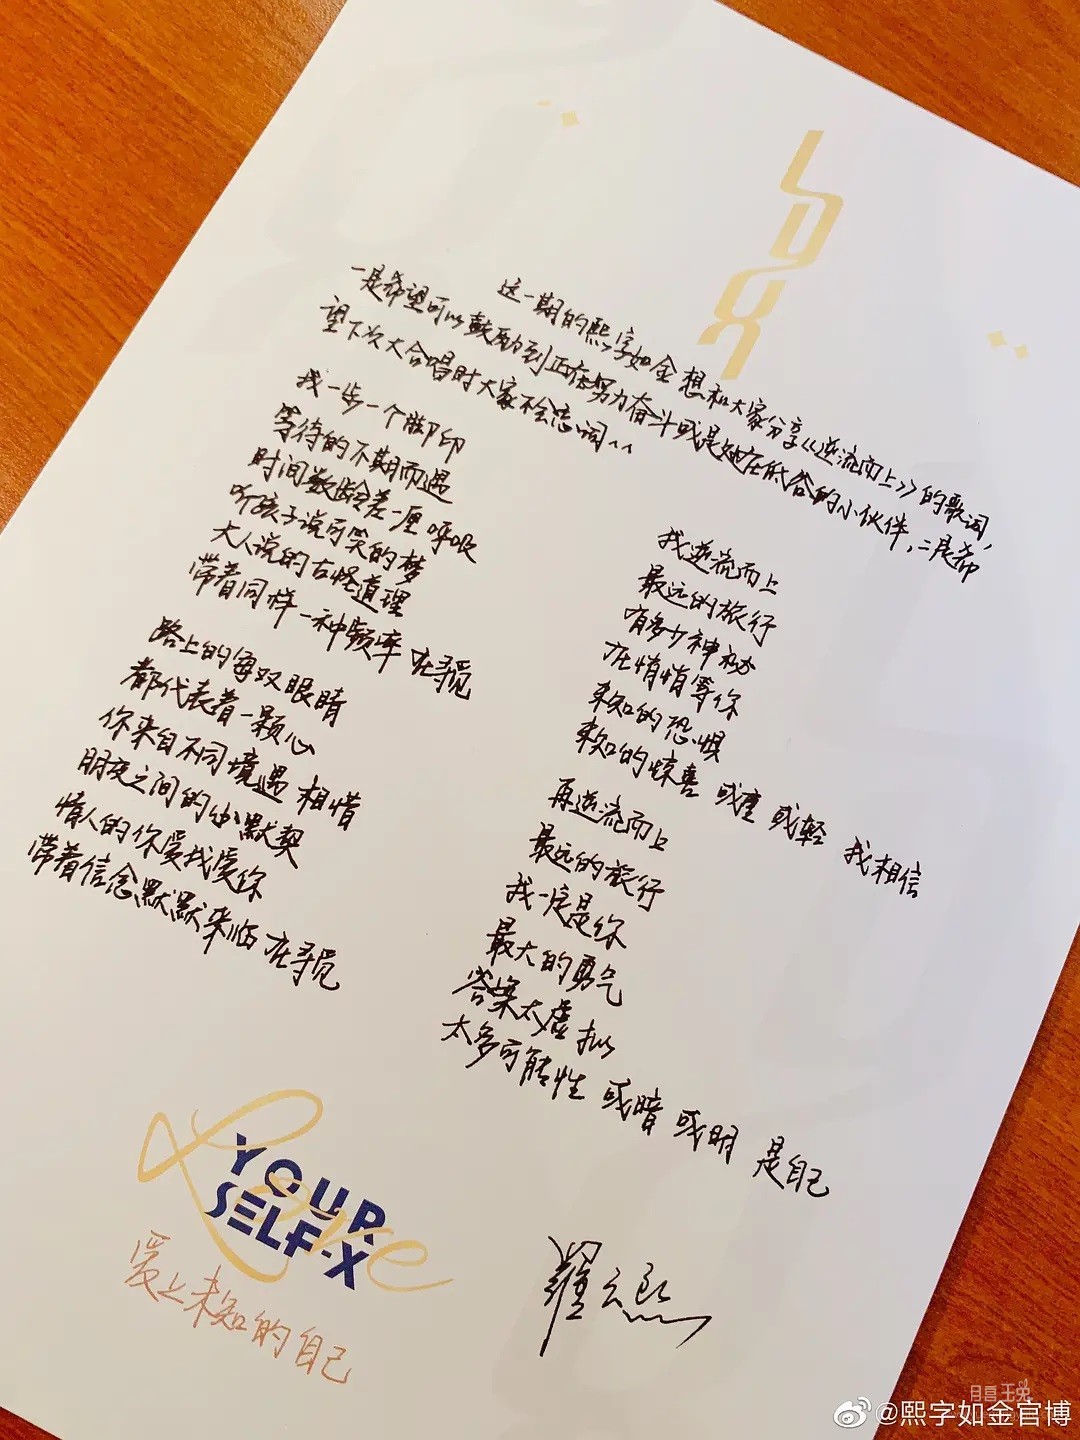 LYX
这一期的熙字如金想和大家分享《逆流而上》的歌词,
一是希望可以鼓励到正在努力奋斗或是处在低谷的小伙伴,二是希
望下次大合唱时大家不会忘词^^
我一步一个脚印
等待的不期而遇
时间数龄差一厘呼吸
听孩子说可笑的梦
大人说的古怪道理
带着同样一种频率 在寻觅
路上的每双眼睛
都代表着一颗心
你来自不同境遇 相惜
朋友之间的小默契
情人的你爱我爱你
带着信念默默来临 在寻觅
我逆流而上
最远的旅行
有多少神秘
在悄悄等你
未知的恐惧
未知的惊喜 或重 或轻 我相信
再逆流而上
最远的旅行
我一定是你
最大的勇气
答案太虚拟
太多可能性 或暗 或明 是自己
Love
YOUR
SELF-X
爱上未知的自己
罗云熙
@熙字如金官博